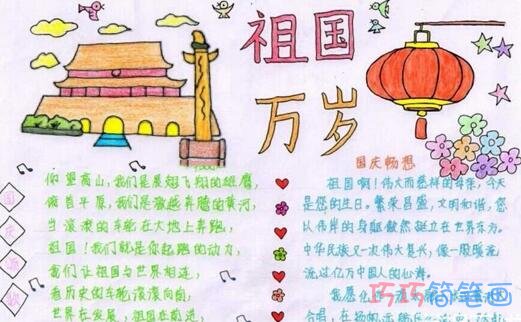 祖国
万岁
国
庆
颂
歌
仰望高山,我们是展翅飞翔的雄鹰,
俯首平原,我们是激越奔腾的黄河,
当滚滚的车轮在大地上奔跑,
祖国!我们就是你起跑的动力,
我们让祖国与世界相连,
看历史的车轮滚滚向前,
世界在发展,祖国在前进,
国庆畅想
祖国啊!伟大而慈祥的母亲,今天
是您的生日。繁荣昌盛,文明和谐,您
以伟岸的身躯傲然挺立在世界东方。
中华民族又一次伟大复兴,像一股暖流
流过亿万中国人的心海。
我愿化作一道
合唱,在扬
巧巧简笔画